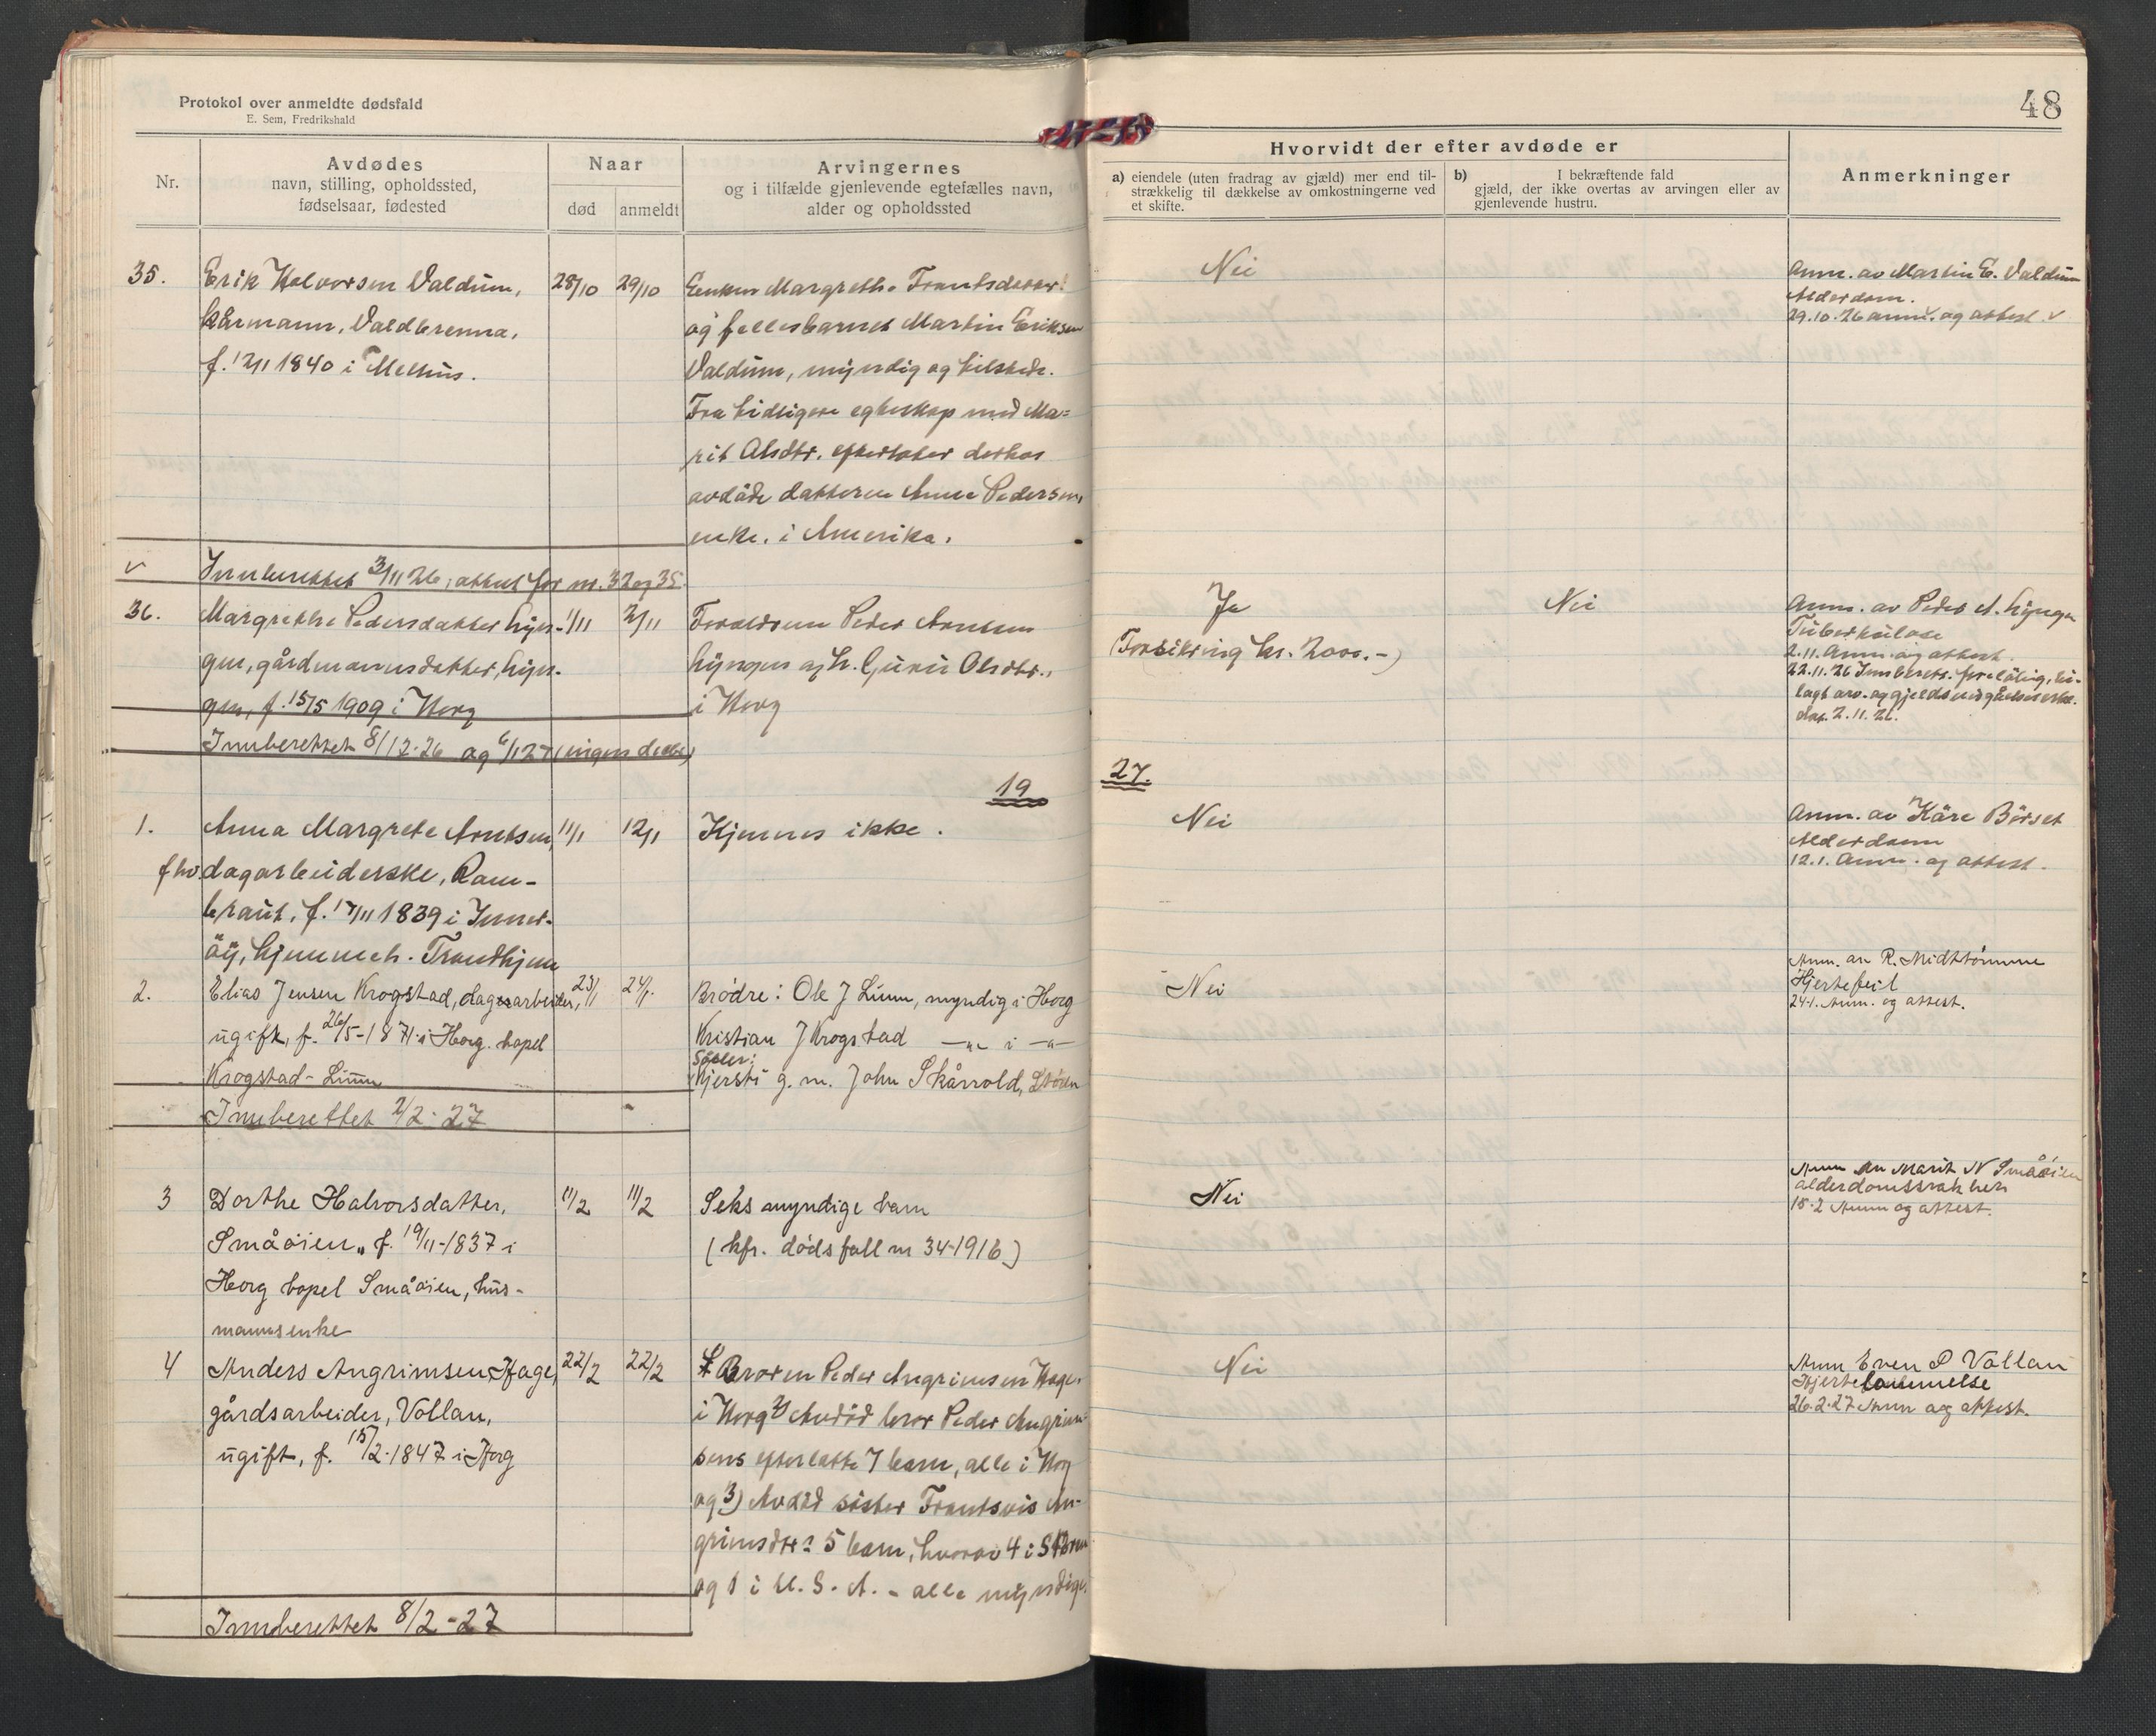 Protokol over anmeldte dødsfald
E. Sem, Fredrikshald
48
Nr.
Avdødes
navn, stilling, opholdssted,
fødselsaar, fødested
Naar
død
anmeldt
Arvingernes
og i tilfælde gjenlevende egtefælles navn,
alder og opholdssted
Hvorvidt der efter avdøde er
a) eiendele (uten fradrag av gjæld) mer end til-
strækkelig til dækkelse av omkostningerne ved
et skifte.
b) I bekræftende fald
gjæld, der ikke overtas av arvingen eller av
gjenlevende hustru.
Anmerkninger
35.
Erik Halvorsen Valdum,
kårmann, Valdbrenna,
f. 12/11 1840 i Melhus.
28/10
29/10
Enken Margrethe Frantsdatter
og fellesbarnet Martin Eriksen
Valdum, myndig og tilstede.
Fra tidligere egteskap med Ma=
rit Olsdtr. efterlater derhos
avdøde datteren Anne Pedersen,
enke, i Amerika.
Nei
Anm. av Martin E. Valdum
Alderdom.
29.10.26 anm. og attest. v
v
Innberettet 3/11 26, attest for nr. 32 og 35.
36.
Margrethe Pedersdatter Lyn-
gen, gårdmannsdatter, Lyn-
gen, f. 15/5 1909 i Horg
1/11
2/11
Foreldrene Peder Arntsen
Lyngen og h. Guru Olsdtr.,
i Horg
Ja
(Forsikring kr. 2000.-)
Nei
Anm. av Peder A. Lyngen
Tuberkulose
2.11. Anm. og attest.
22.11.26 Innberetn. foreløbig, bi-
lagt arv. og gjelds
dat. 2.11.26.
Innberettet 8/12.26 og 6/1 27 (ingen døde)
19
27.
1.
Anna Margrete Arntsen,
fhv. dagarbeiderske, Ram-
braut, f. 17/11 1839 i Inner-
öy, hjemmeh. Trondhjem
11/1
12/1
Kjennes ikke.
Nei
Anm. av Kåre Börset
Alderdom
12.1. Anm. og attest.
2.
Elias Jensen Krogstad, dagarbeider,
ugift, f. 26/5-1871 i Horg. bopel
Krogstad-Lium
23/1
24/1.
Brødre: Ole J Lium, myndig i Horg
Kristian J Krogstad —"— i —"—
Søster:
Kjersti g. m. John Skårvold, Støren
Nei
Anm. av R. Midttömme
Hjertefeil
24-1. Anm. og attest.
Innberettet 2/2-27
3
Dorthe Halvorsdatter,
Småøien, f. 19/11-1837 i
Horg bopel Småøien, hus-
mannsenke
11/2
11/2
Seks myndige barn
(kfr. dødsfall nr 34-1916)
Nei
Anm av Marit N Småøien
alderdomssvakhet
15-2 Anm og attest.
4
Anders Angrimsen Hage,
gårdsarbeider, Vollan,
ugift, f. 15/2-1847 i Horg
22/2
22/2
Broren Peder Angrimsen Hage,
i Horg 2) Avdöd bror Peder Angrim-
sens efterlatte 7 barn, alle i Horg
og 3) Avdöd söster Frantsvis An-
grimsdtr: 5 barn, hvorav 4 i Stören
og 1 i U. S. A. - alle myndige.
Nei
Anm Even P Vollan
Hjertelammelse
26-2-27 Anm og attest.
Innberettet 8/2-27